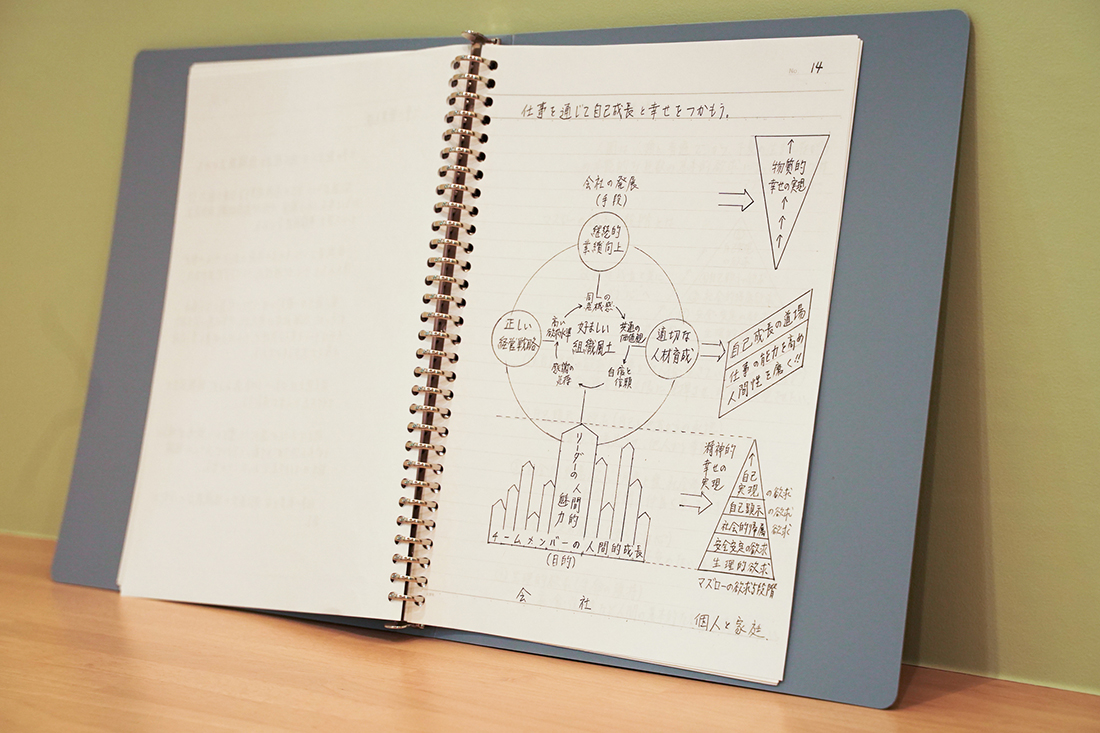 14
仕事を通じて自己成長と幸せをつかもう。
会社の発展
(手段)
継続的
業績向上
正しい
経営戦略
適切な
人材育成
同一の
危機感
高い
欲求水準
好ましい
組織風土
共通の
価値観
感情の
共有
自信と
信頼
リーダーの人間的
魅力
チームメンバーの人間的成長
(目的)
会社
物質的
幸せの実現
自己成長の道場
仕事の能力を高め
人間性を磨く!!
精神的
幸せの
実現
自己
実現の欲求
自己顕示の欲求
社会的帰属欲求
安全安定の欲求
生理的欲求
マズローの欲求5段階
個人と家庭